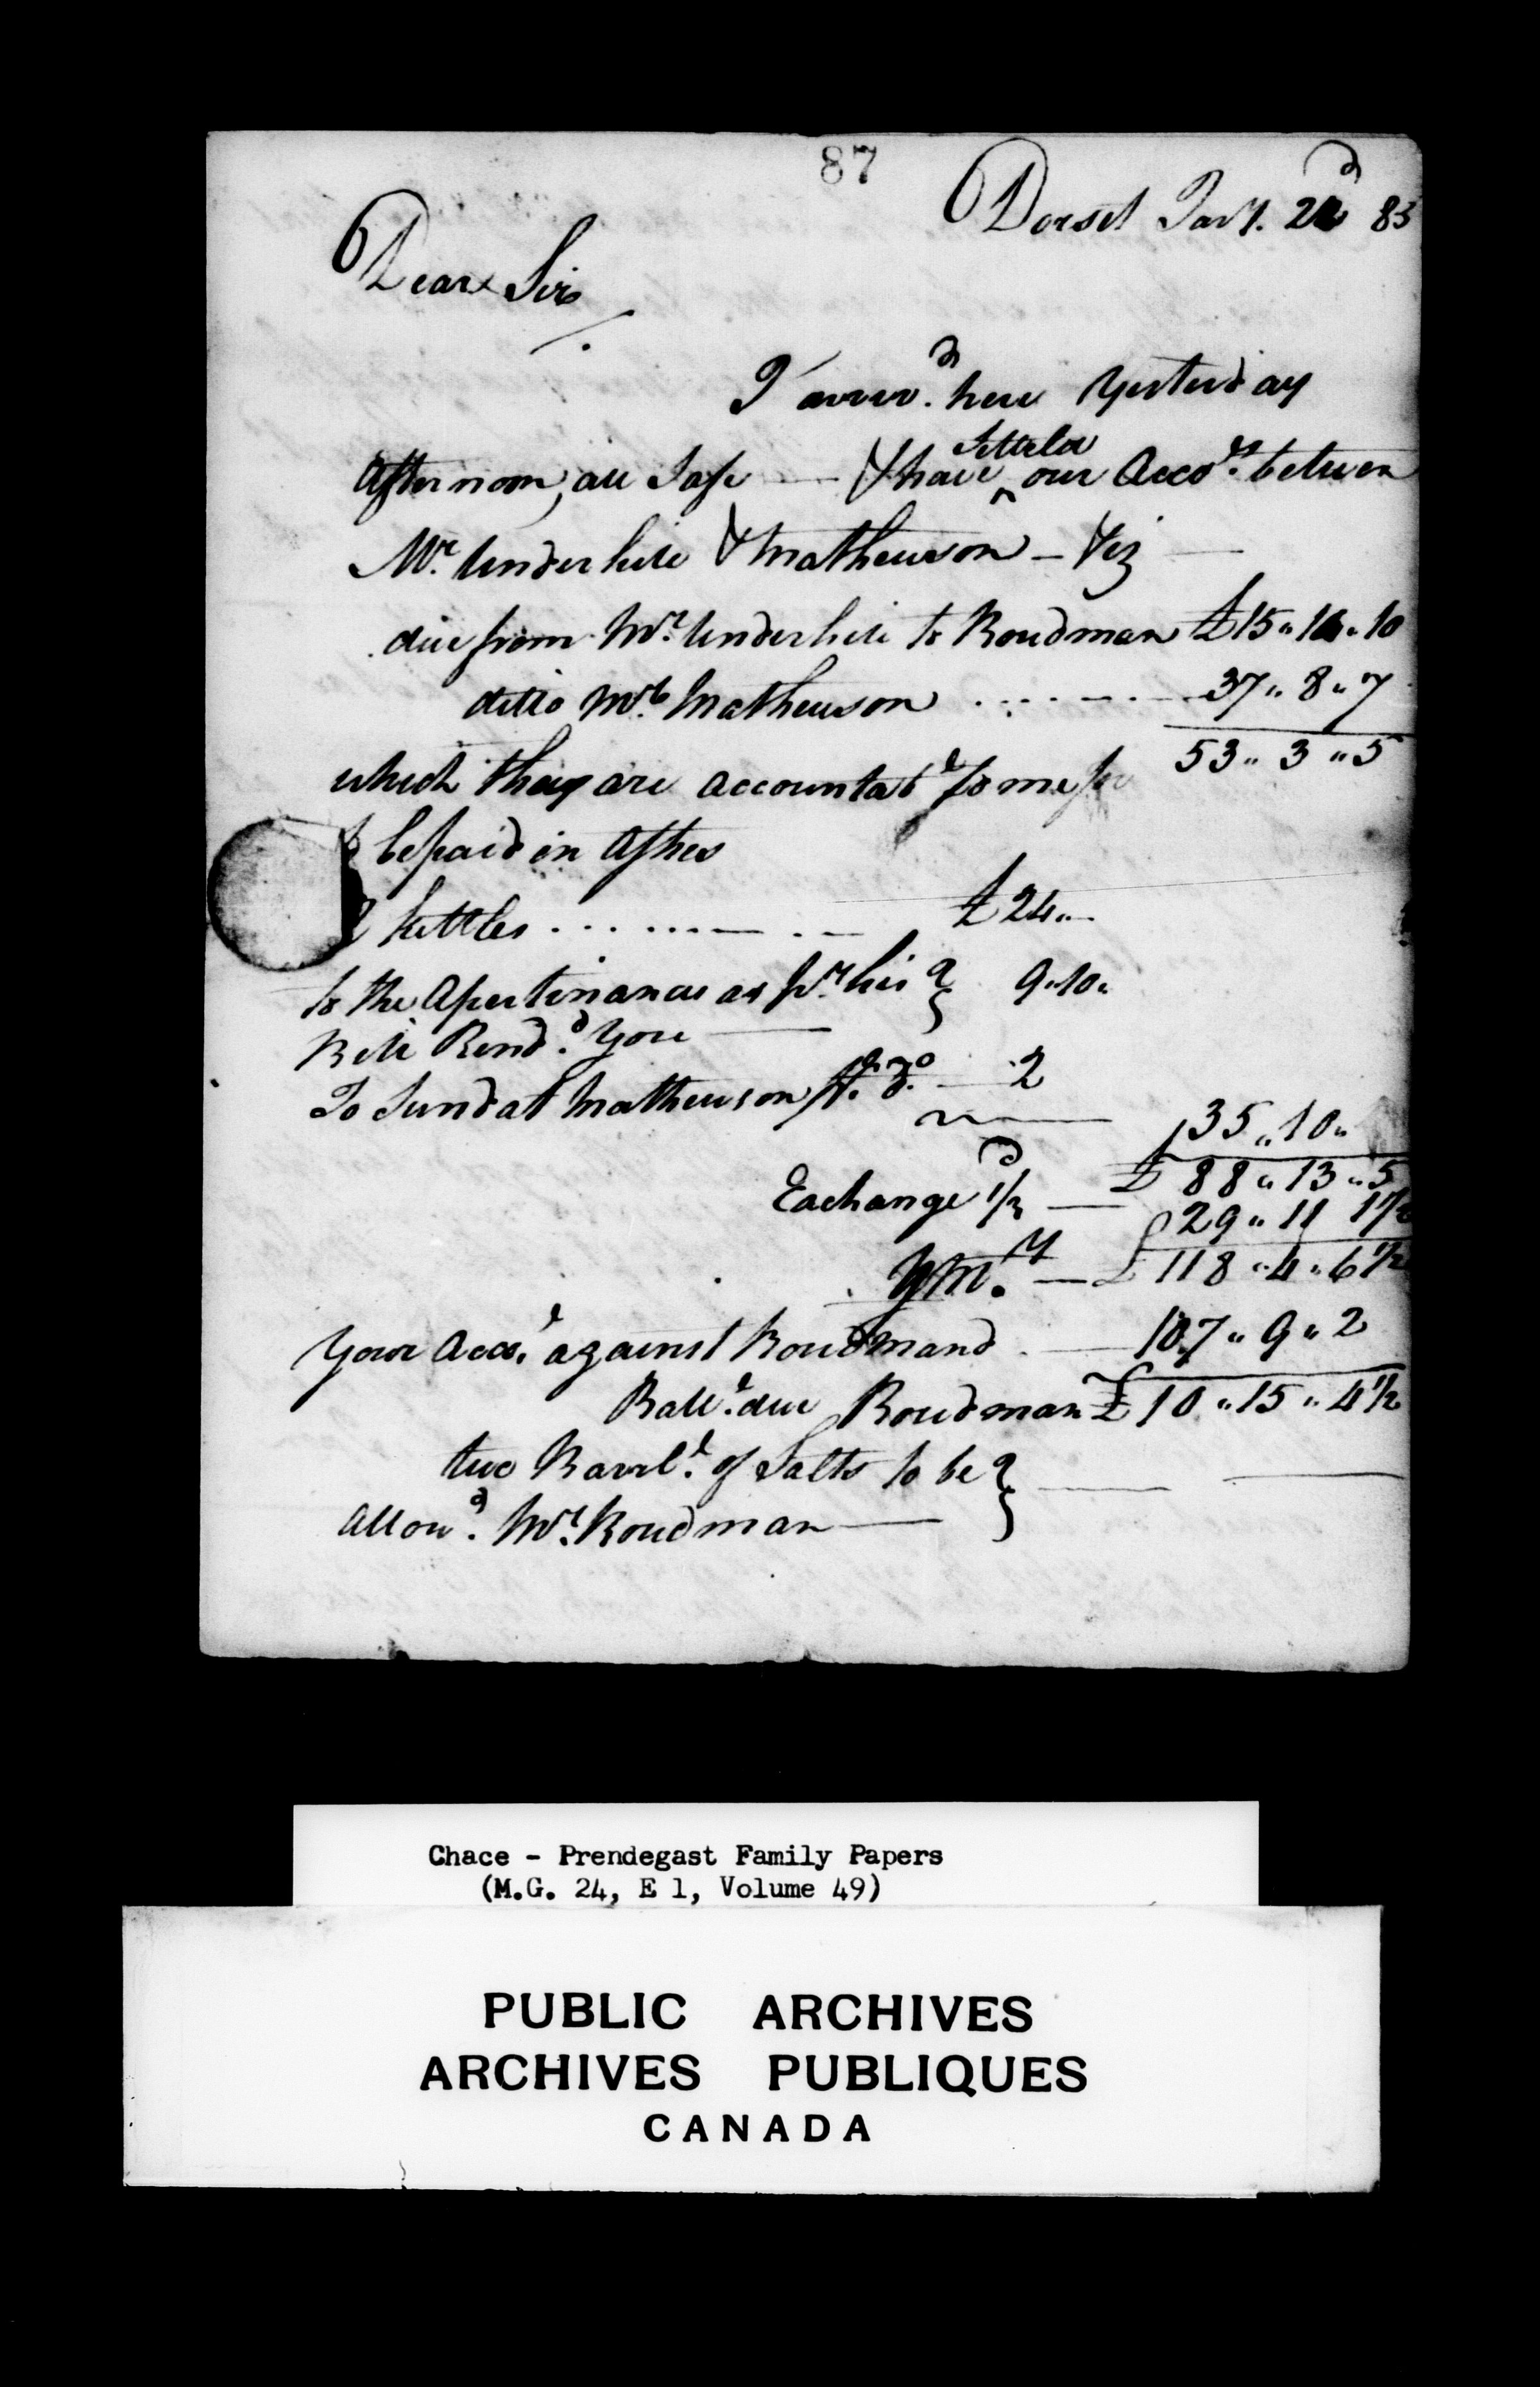 87
Dorset Jany. 22d 83
Dear Sir
I arriv.d here Yesterday
Afternoon, all Safe — & have Setteled our Acco.ts between
Mr. Underhile & Mathewson — Viz —
due from Mr. Underhile to Boudman £15 " 14 " 10
ditto Mr. Mathewson . . . . — . — 37 " 8 " 7
53 " 3 " 5
which they are accountab.e to me for
be paid in Ashes
kettles . . . . . . . — . — £ 24 " —
to the Apertinances as pr. his } 9 " 10 "
Bill Rend.d You —
To Sund at Mathewson pr. do. — 2
35 " 10 "
£ 88 " 13 " 5
Exchange 1/3d — 29 " 11 1 1/2
— £ 118 " 4 " 6 1/2
Your Acco.t against Boudmand . — 107 " 9 " 2
Ball.e due Boudman £ 10 " 15 " 4 1/2
two Barrl.s of Salts to be } —
Allow.d Mr. Boudman —
Chace - Prendegast Family Papers
(M.G. 24, E 1, Volume 49)
PUBLIC ARCHIVES
ARCHIVES PUBLIQUES
CANADA